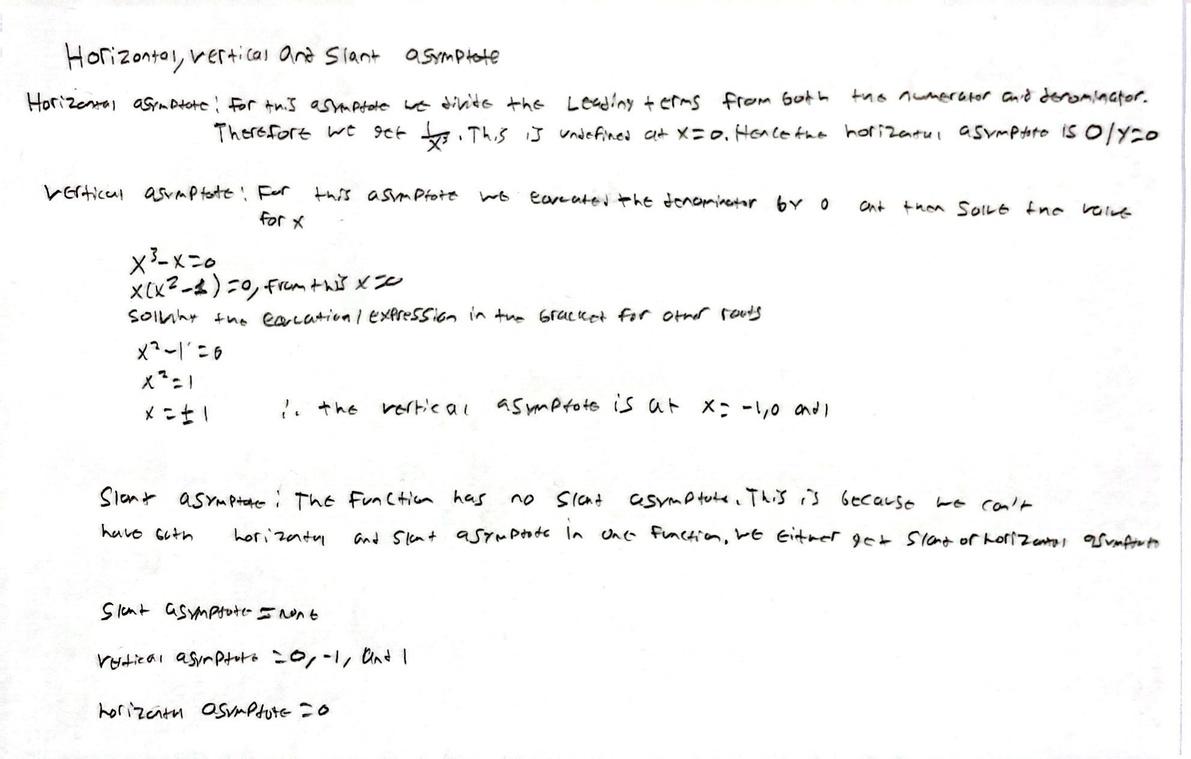 Horizontal, vertical and Slant asymptote
Horizontal asymptote: For this asymptote we divide the Leading terms from both the numerator and denominator.
Therefore we get 1/x³. This is undefined at x=0. Hence the horizontal asymptote is 0/y=0
vertical asymptote: For this asymptote we equated the denominator by 0 and then solve the value
for x
x³-x=0
x(x²-1)=0, from this x=0
Solving the equation/expression in the bracket for other roots
x²-1=0
x²=1
x=±1 ∴ the vertical asymptote is at x=-1,0 and 1
Slant asymptote: The Function has no slant asymptote. This is because we can't
have both horizontal and slant asymptote in one function, we either get slant or horizontal asymptote
Slant asymptote = none
vertical asymptote =0,-1, and 1
horizontal asymptote =0